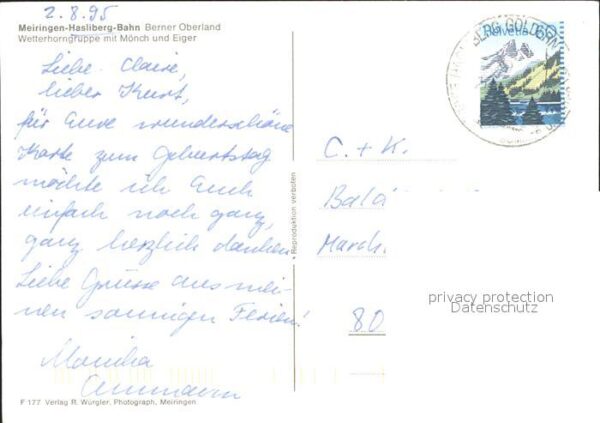 2.8.95
Meiringen-Hasliberg-Bahn Berner Oberland
Wetterhorngruppe mit Mönch und Eiger
Liebe Claire,
lieber Kurt,
für Eure wunderschöne
Karte zum Geburtstag
möchte ich Euch
einfach noch ganz,
ganz herzlich danken.
Liebe Grüsse aus mei-
nen sonnigen Ferien!
Monika
Ammann
F 177 Verlag R. Würgler, Photograph, Meiringen
Reproduktion verboten
Helvetia
BERG GOLDERN
C. + K.
Balá
March
80
privacy protection
Datenschutz